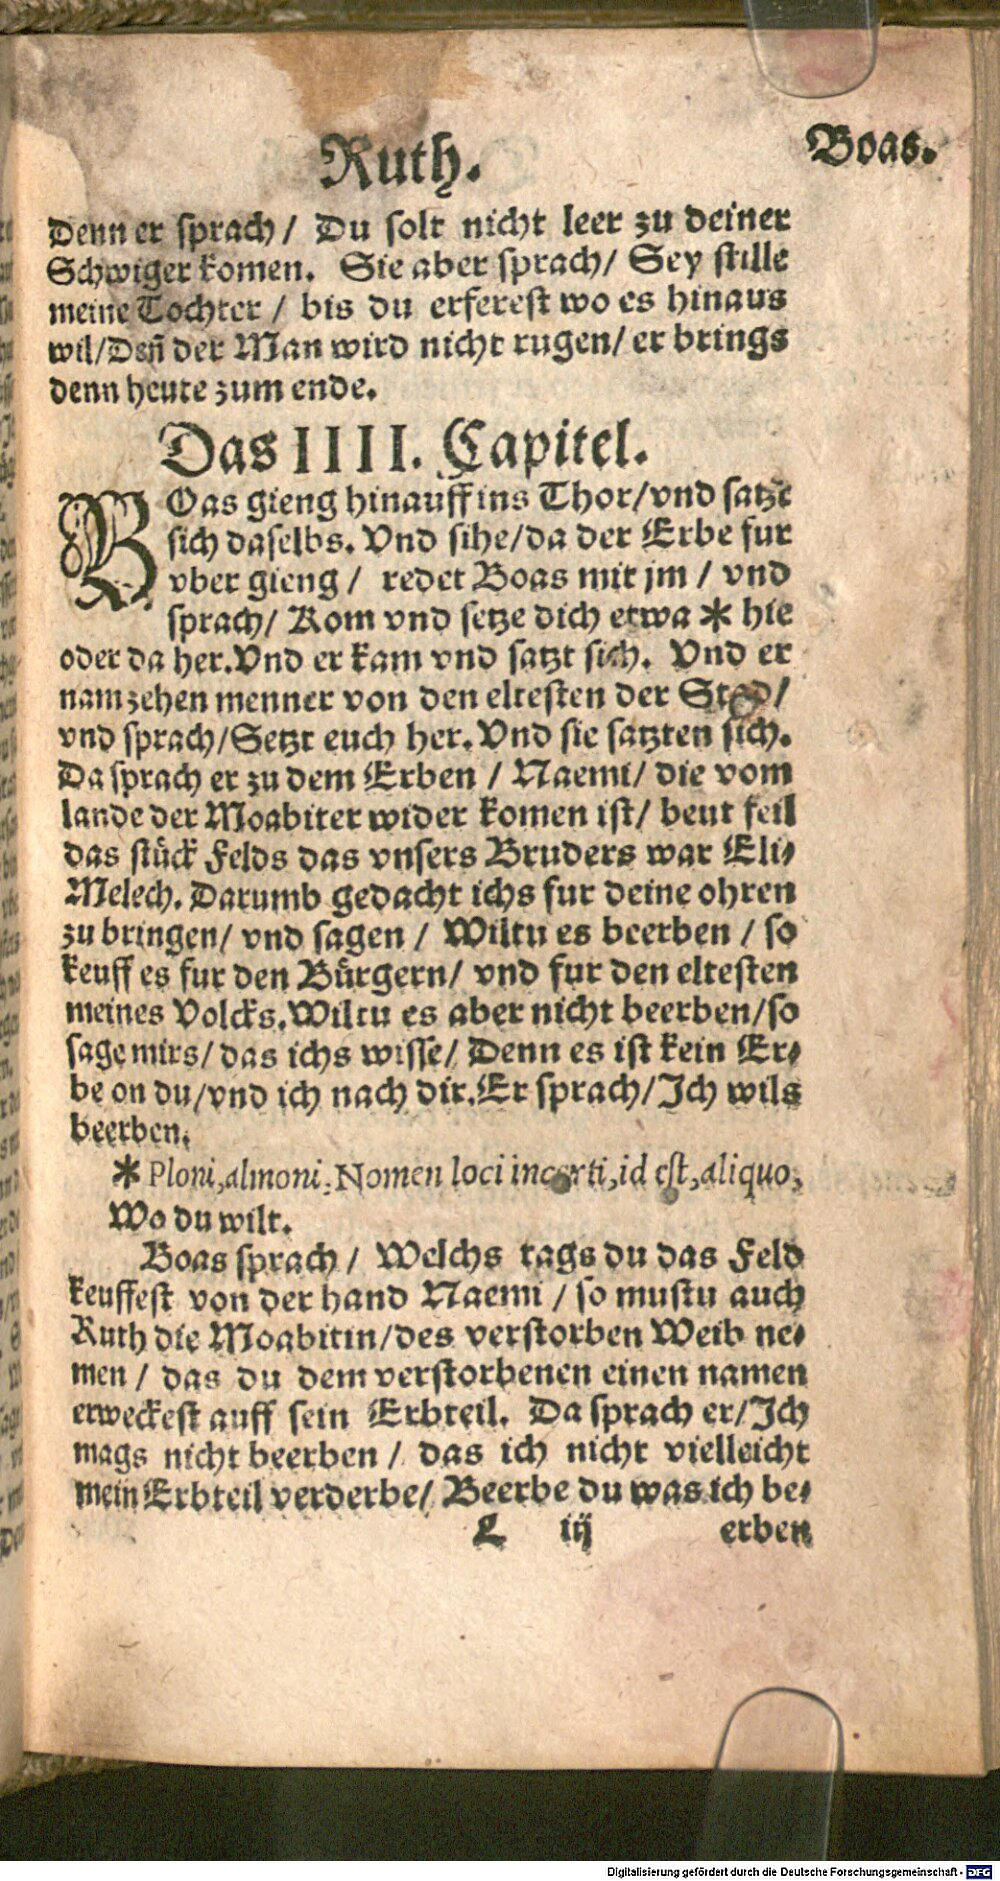 Ruth. Boas.
Denn er sprach/ Du solt nicht leer zu deiner
Schwiger komen. Sie aber sprach/ Sey stille
meine Tochter / bis du erferest wo es hinaus
wil/Deñ der Man wird nicht rugen/ er brings
denn heute zum ende.
Das IIII. Capitel.
BOas gieng hinauff ins Thor/vnd satzt
sich daselbs. Vnd sihe/da der Erbe fur
vber gieng / redet Boas mit jm / vnd
sprach/ Kom vnd setze dich etwa * hie
oder da her.Vnd er kam vnd satzt sich. Vnd er
nam zehen menner von den eltesten der Stad/
vnd sprach/Setzt euch her.Vnd sie satzten sich.
Da sprach er zu dem Erben / Naemi/ die vom
lande der Moabiter wider komen ist/ beut feil
das stück Felds das vnsers Bruders war Eli-
Melech. Darumb gedacht ichs fur deine ohren
zu bringen/ vnd sagen / Wiltu es beerben / so
keuff es fur den Bürgern/ vnd fur den eltesten
meines Volcks.Wiltu es aber nicht beerben/so
sage mirs/ das ichs wisse/ Denn es ist kein Er-
be on du/vnd ich nach dir.Er sprach/Ich wils
beerben.
* Ploni,almoni,Nomen loci incerti,id est,aliquo,
Wo du wilt.
Boas sprach / Welchs tags du das Feld
keuffest von der hand Naemi / so mustu auch
Ruth die Moabitin/des verstorben Weib ne-
men / das du dem verstorbenen einen namen
erweckest auff sein Erbteil. Da sprach er/Ich
mags nicht beerben / das ich nicht vielleicht
mein Erbteil verderbe/ Beerbe du was ich be-
L iij erben
Digitalisierung gefördert durch die Deutsche Forschungsgemeinschaft - DFG